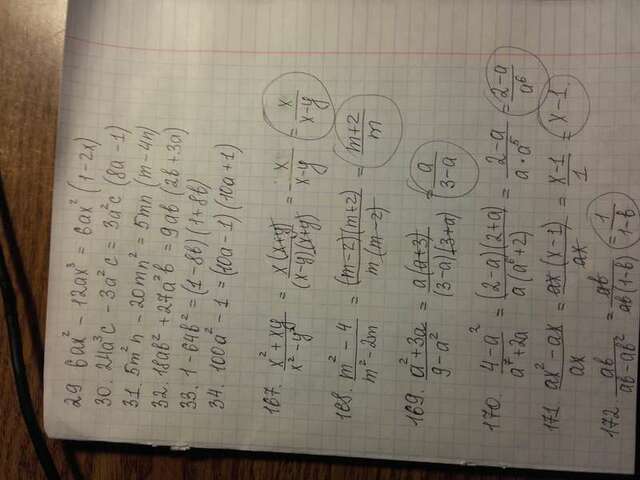 29. 6ax² - 12ax³ = 6ax² (1-2x)
30. 24a³c - 3a²c = 3a²c (8a - 1)
31. 5m²n - 20mn² = 5mn (m - 4n)
32. 18ab² + 27a²b = 9ab (2b + 3a)
33. 1 - 64b² = (1 - 8b) (1 + 8b)
34. 100a² - 1 = (10a - 1) (10a + 1)
167. (x² + xy)/(x² - y²) = x(x+y)/((x-y)(x+y)) = x/(x-y) = x/(x-y)
168. (m² - 4)/(m² - 2m) = (m-2)(m+2)/(m(m-2)) = (m+2)/m
169. (a² + 3a)/(9 - a²) = a(a+3)/((3-a)(3+a)) = a/(3-a)
170. (4-a²)/(a⁷+2a) = (2-a)(2+a)/(a(a⁶+2)) = (2-a)/(a·a⁵) = (2-a)/a⁶
171. (ax² - ax)/ax = ax(x-1)/ax = (x-1)/1 = x-1
172. ab/(ab-ab²) = ab/(ab(1-b)) = 1/(1-b)